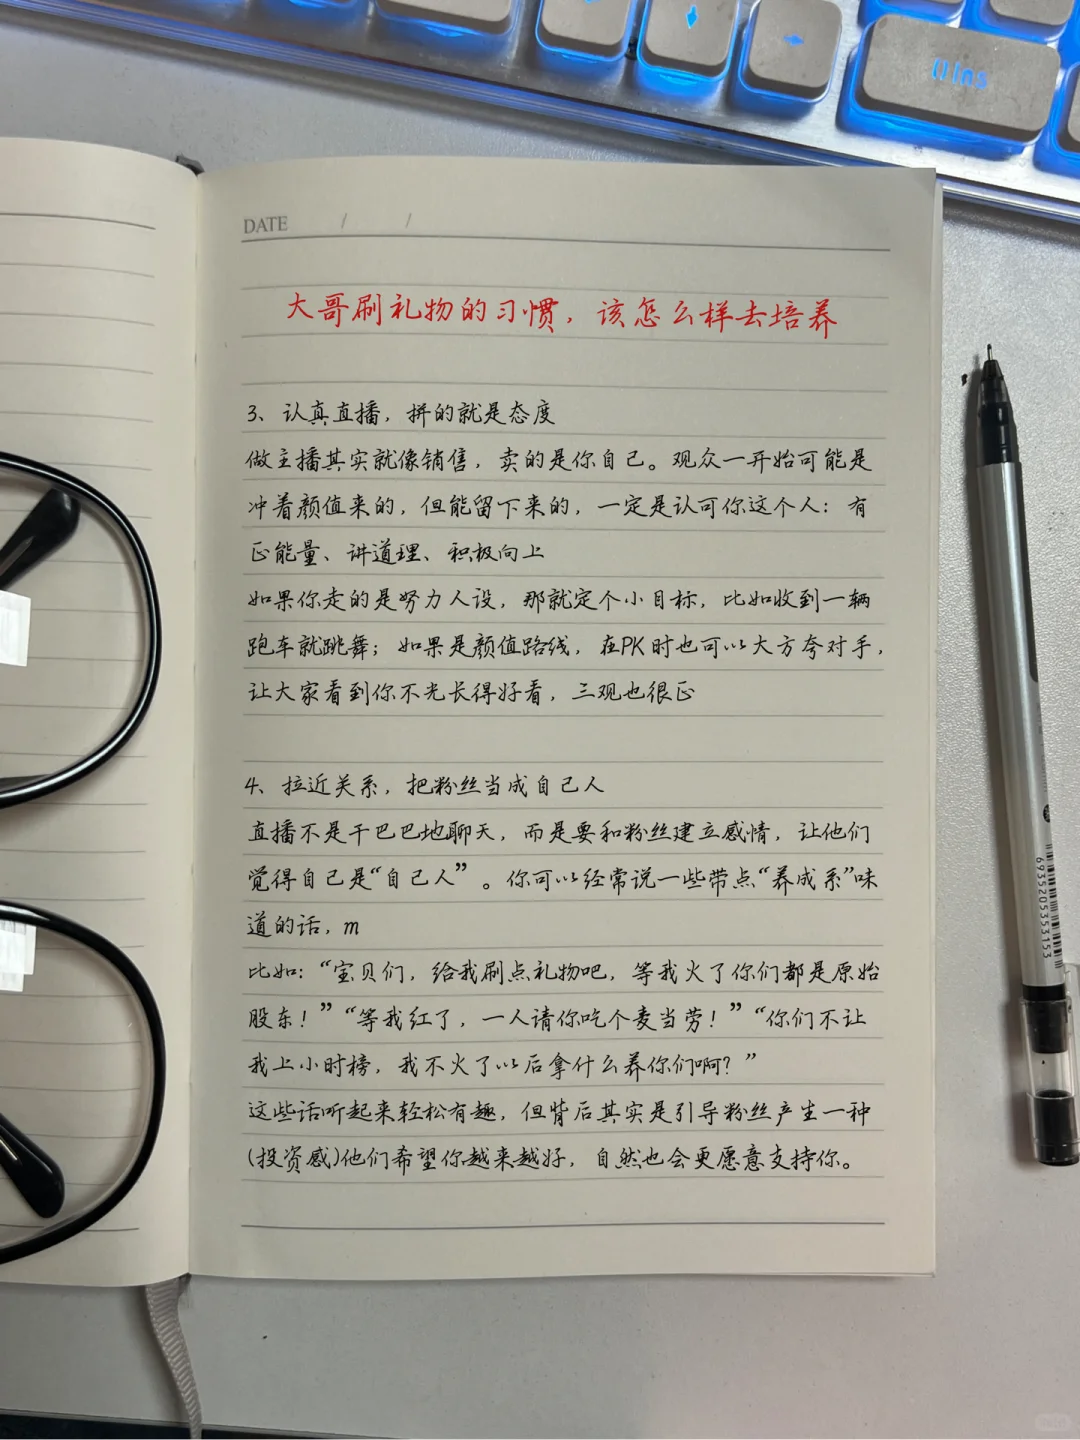 Ins
DATE / /
大哥刷礼物的习惯，该怎么样去培养
3、认真直播，拼的就是态度
做主播其实就像销售，卖的是你自己。观众一开始可能是
冲着颜值来的，但能留下来的，一定是认可你这个人：有
正能量、讲道理、积极向上
如果你走的是努力人设，那就定个小目标，比如收到一辆
跑车就跳舞；如果是颜值路线，在PK时也可以大方夸对手，
让大家看到你不光长得好看，三观也很正
4、拉近关系，把粉丝当成自己人
直播不是干巴巴地聊天，而是要和粉丝建立感情，让他们
觉得自己是“自己人”。你可以经常说一些带点“养成系”味
道的话，m
比如：“宝贝们，给我刷点礼物吧，等我火了你们都是原始
股东！”“等我红了，一人请你吃个麦当劳！”“你们不让
我上小时榜，我不火了以后拿什么养你们啊？”
这些话听起来轻松有趣，但背后其实是引导粉丝产生一种
(投资感)他们希望你越来越好，自然也会更愿意支持你。
6935205353153